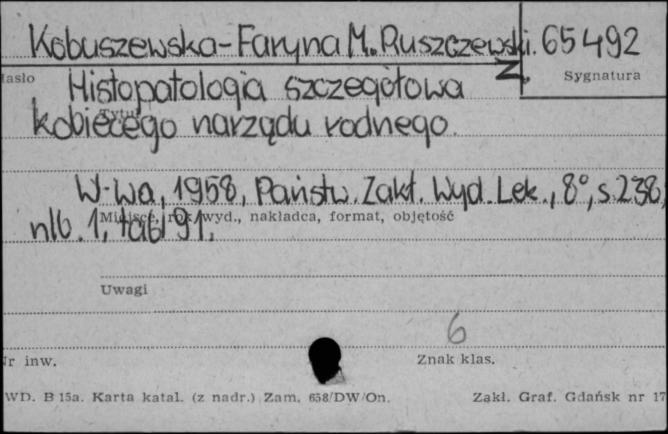 Kobuszewska-Faryna M. Ruszczewski. Z. 65492
Hasło
Sygnatura
Histopatologia szczegółowa
Tytuł
kobiecego narządu rodnego.
W-wa, 1958, Państw. Zakł. Wyd. Lek., 8°, s. 238,
Miejsce, rok wyd., nakładca, format, objętość
nlb. 1, tabl 91.
Uwagi
6
Nr inw.
Znak klas.
WD. B 15a. Karta katal. (z nadr.) Zam. 658/DW/On.
Zakł. Graf. Gdańsk nr 17